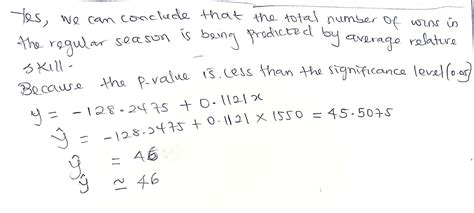 Yes, we can conclude that the total number of wins in
the regular season is being predicted by average relative
skill.
Because the p-value is less than the significance level (0.05)
y = -128.2475 + 0.1121x
ŷ = -128.2475 + 0.1121 × 1550 = 45.5075
ŷ = 46
ŷ ≃ 46